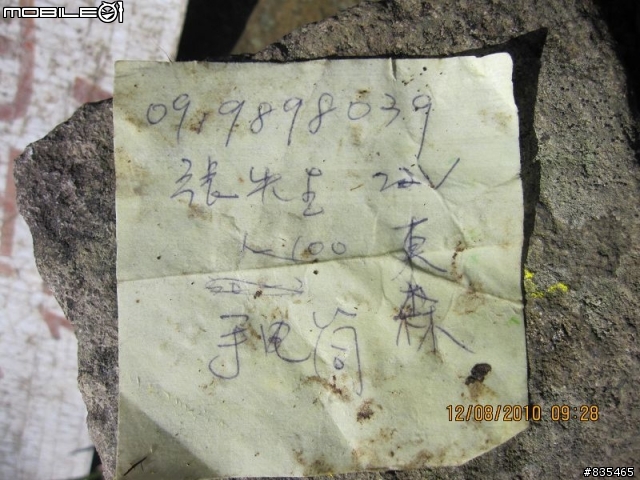 MOBILE01
0919898039
張先生 22V
L-100
東森
手电筒
12/08/2010 09:28
#835465